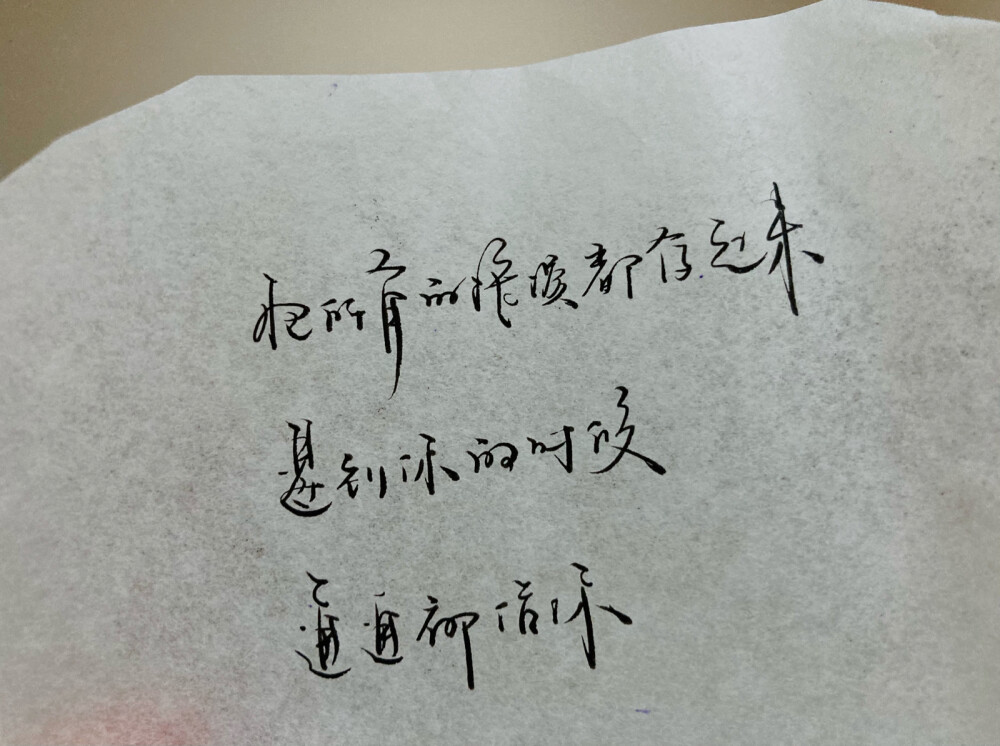 把所有的都存起来
遇到你的时候
通通都信你